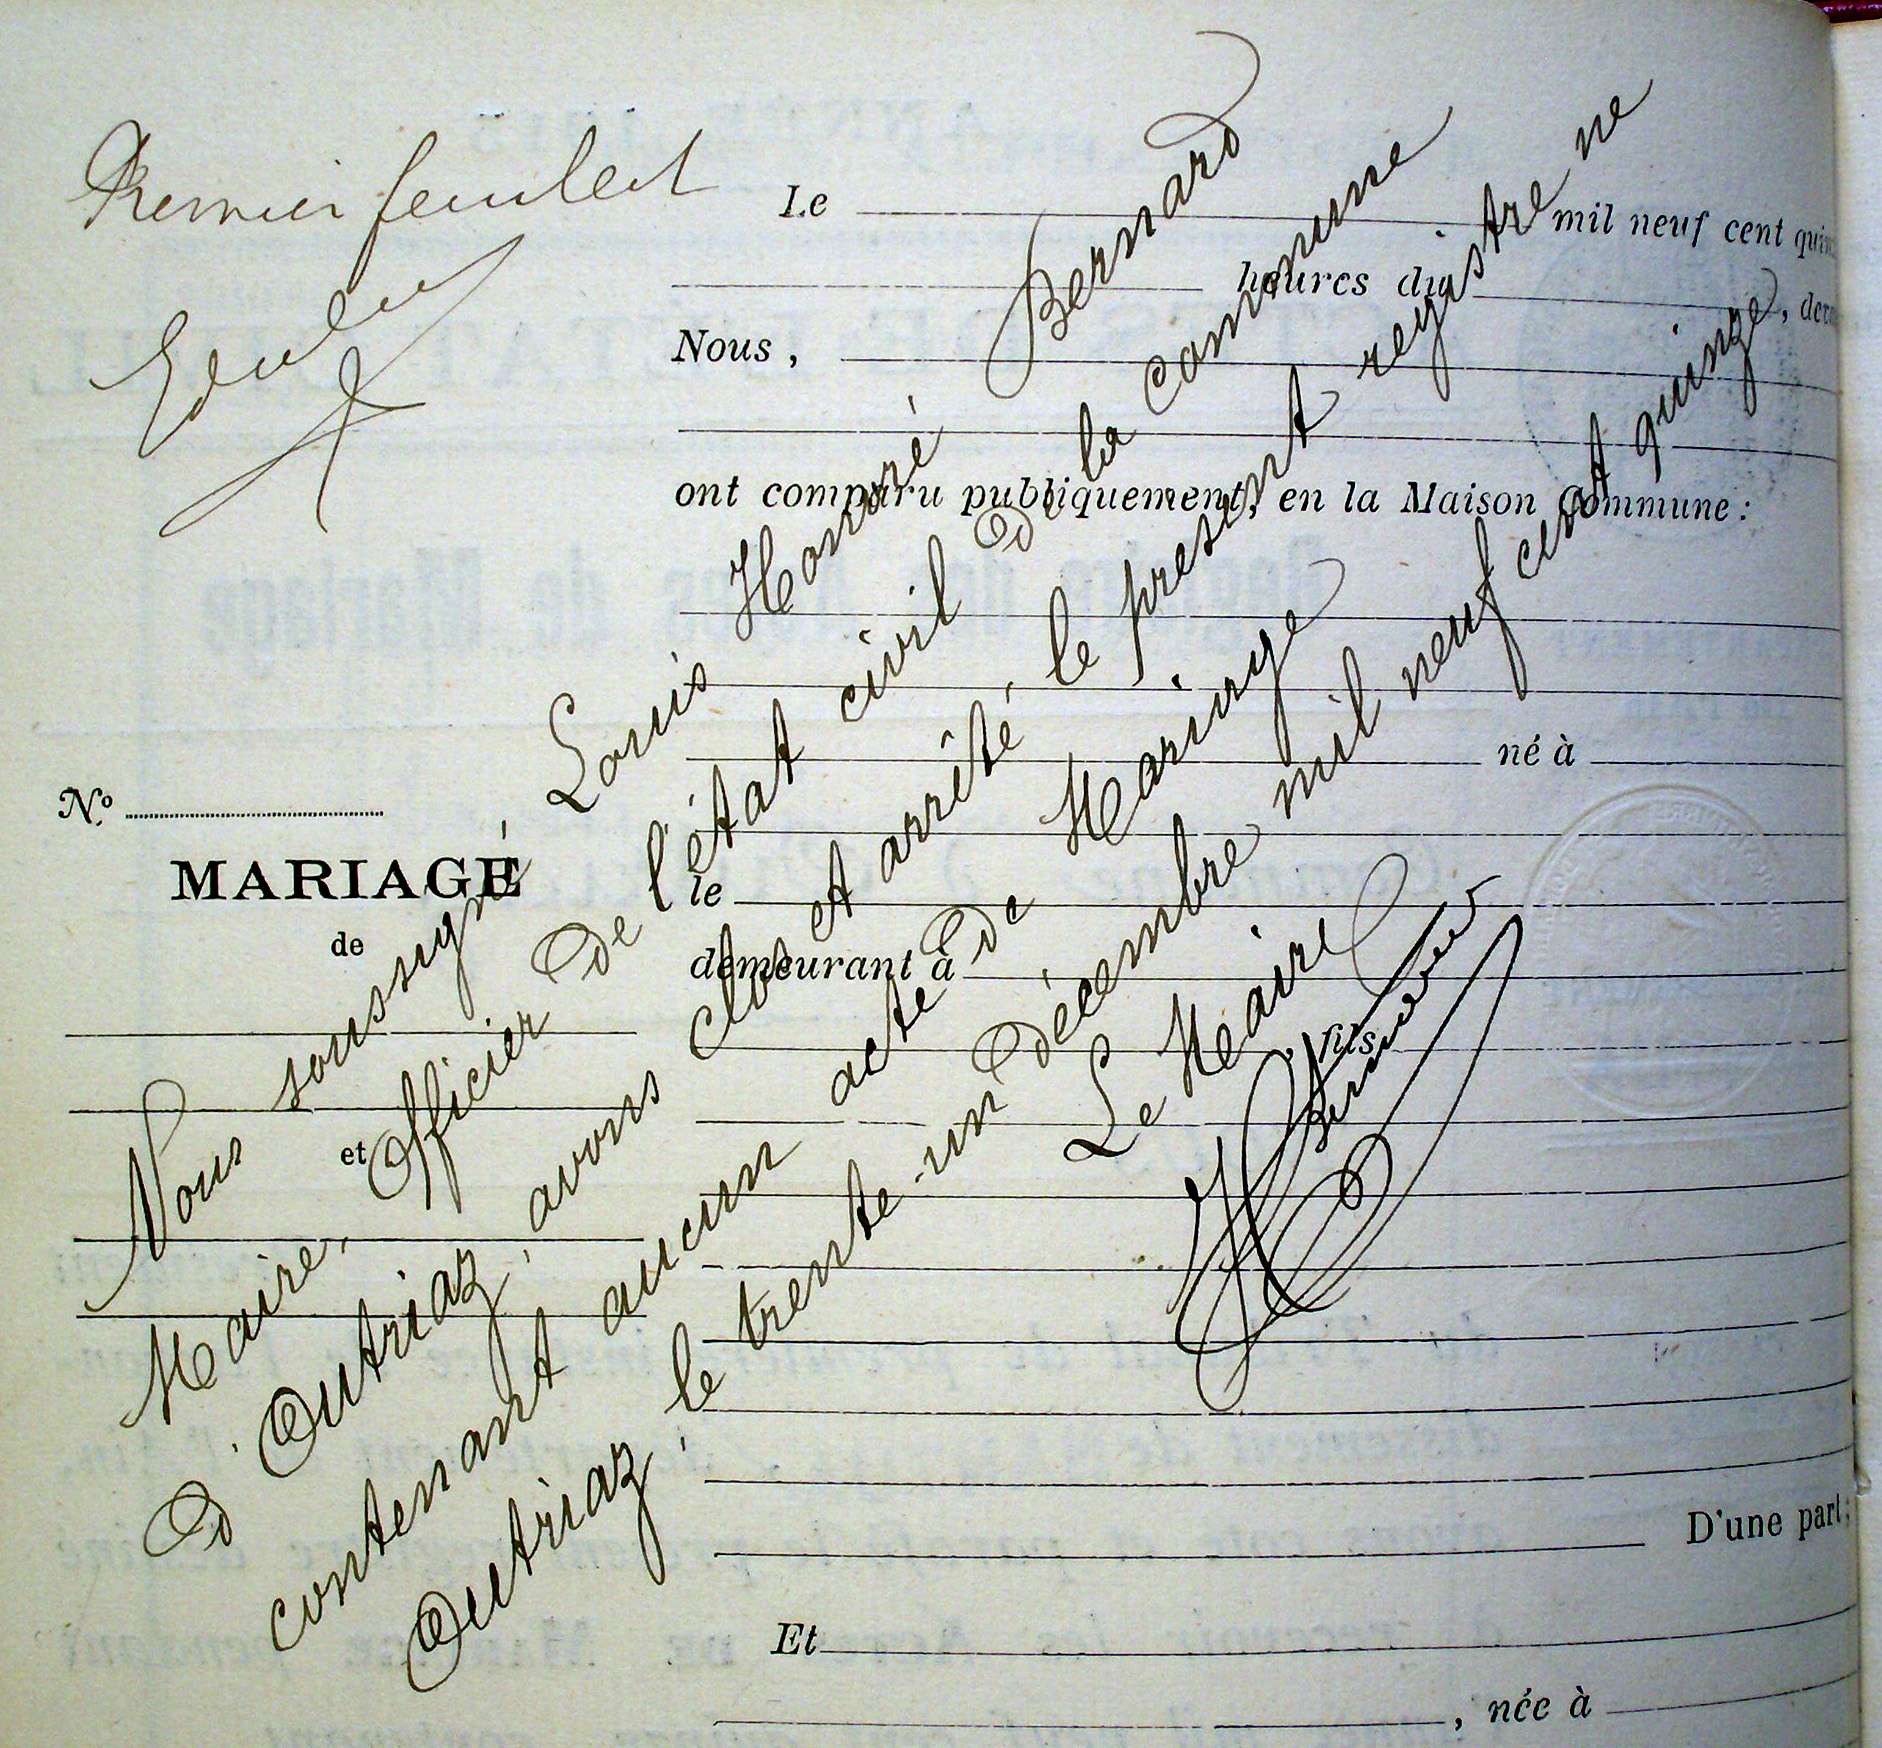 Premier feuillet
Le mil neuf cent
heures du
Nous ,
ont comparu publiquement, en la Maison Commune :
né à
N.º
MARIAGE
de
le
demeurant à
, fils
et
D'une part ;
Et
, née à
Nous soussigné Louis Honoré Bernard
Maire, Officier de l'état civil de la commune
d'Outriaz, avons clos et arrêté, le présent registre ne
contenant aucun acte de Mariage
Outriaz, le trente-un décembre mil neuf cent quinze
Le Maire
H Bernard